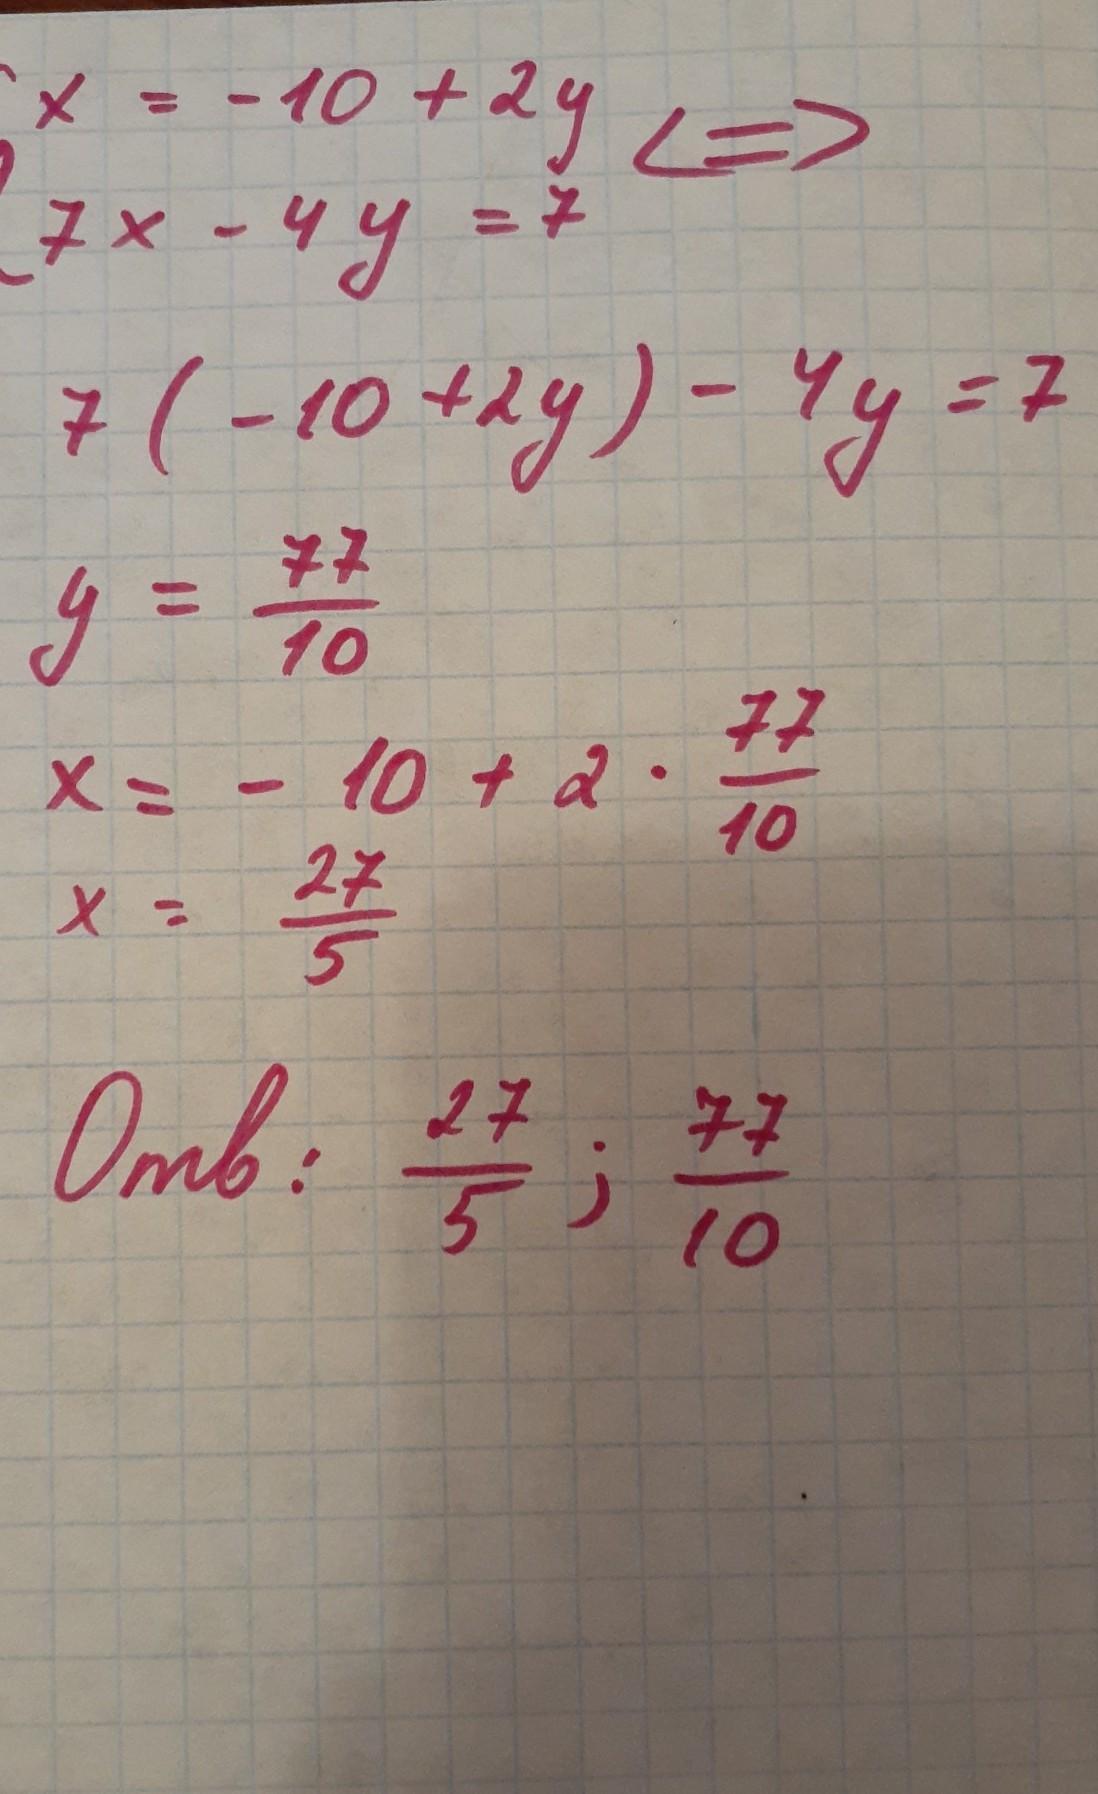 { x = -10 + 2y <=>
7x - 4y = 7
7 ( -10 + 2y ) - 4y = 7
y = 77/10
x = - 10 + 2 · 77/10
x = 27/5
Отв: 27/5 ; 77/10